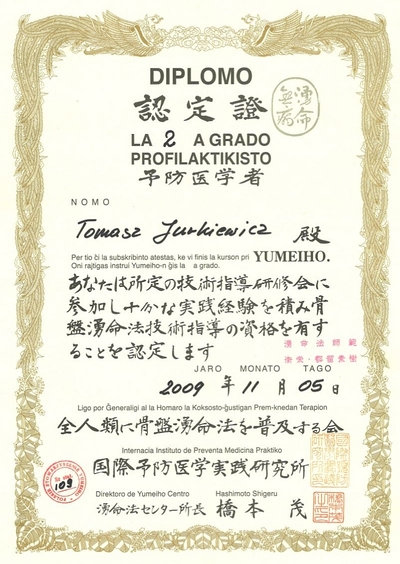 DIPLOMO
認定證
湧命
無病
LA 2 A GRADO
PROFILAKTIKISTO
予防医学者
NOMO
Tomasz Jurkiewicz 殿
Per tio ĉi la subskribinto atestas, ke vi finis la kurson pri YUMEIHO.
Oni rajtigas instrui Yumeiho-n ĝis la a grado.
あなたは所定の技術指導研修会に
参加し十分な実践経験を積み骨
盤湧命法技術指導の資格を有す
ることを認定します
湧命法師範
JARO MONATO TAGO
2009 年 11 月 05 日
Ligo por Ĝeneraligi al la Homaro la Koksosto-ĝustigan Prem-knedan Terapion
全人類に骨盤湧命法を普及する会
Internacia Instituto de Preventa Medicina Praktiko
国際予防医学実践研究所
Direktoro de Yumeiho Centro Hashimoto Shigeru
湧命法センター所長 橋本 茂
109